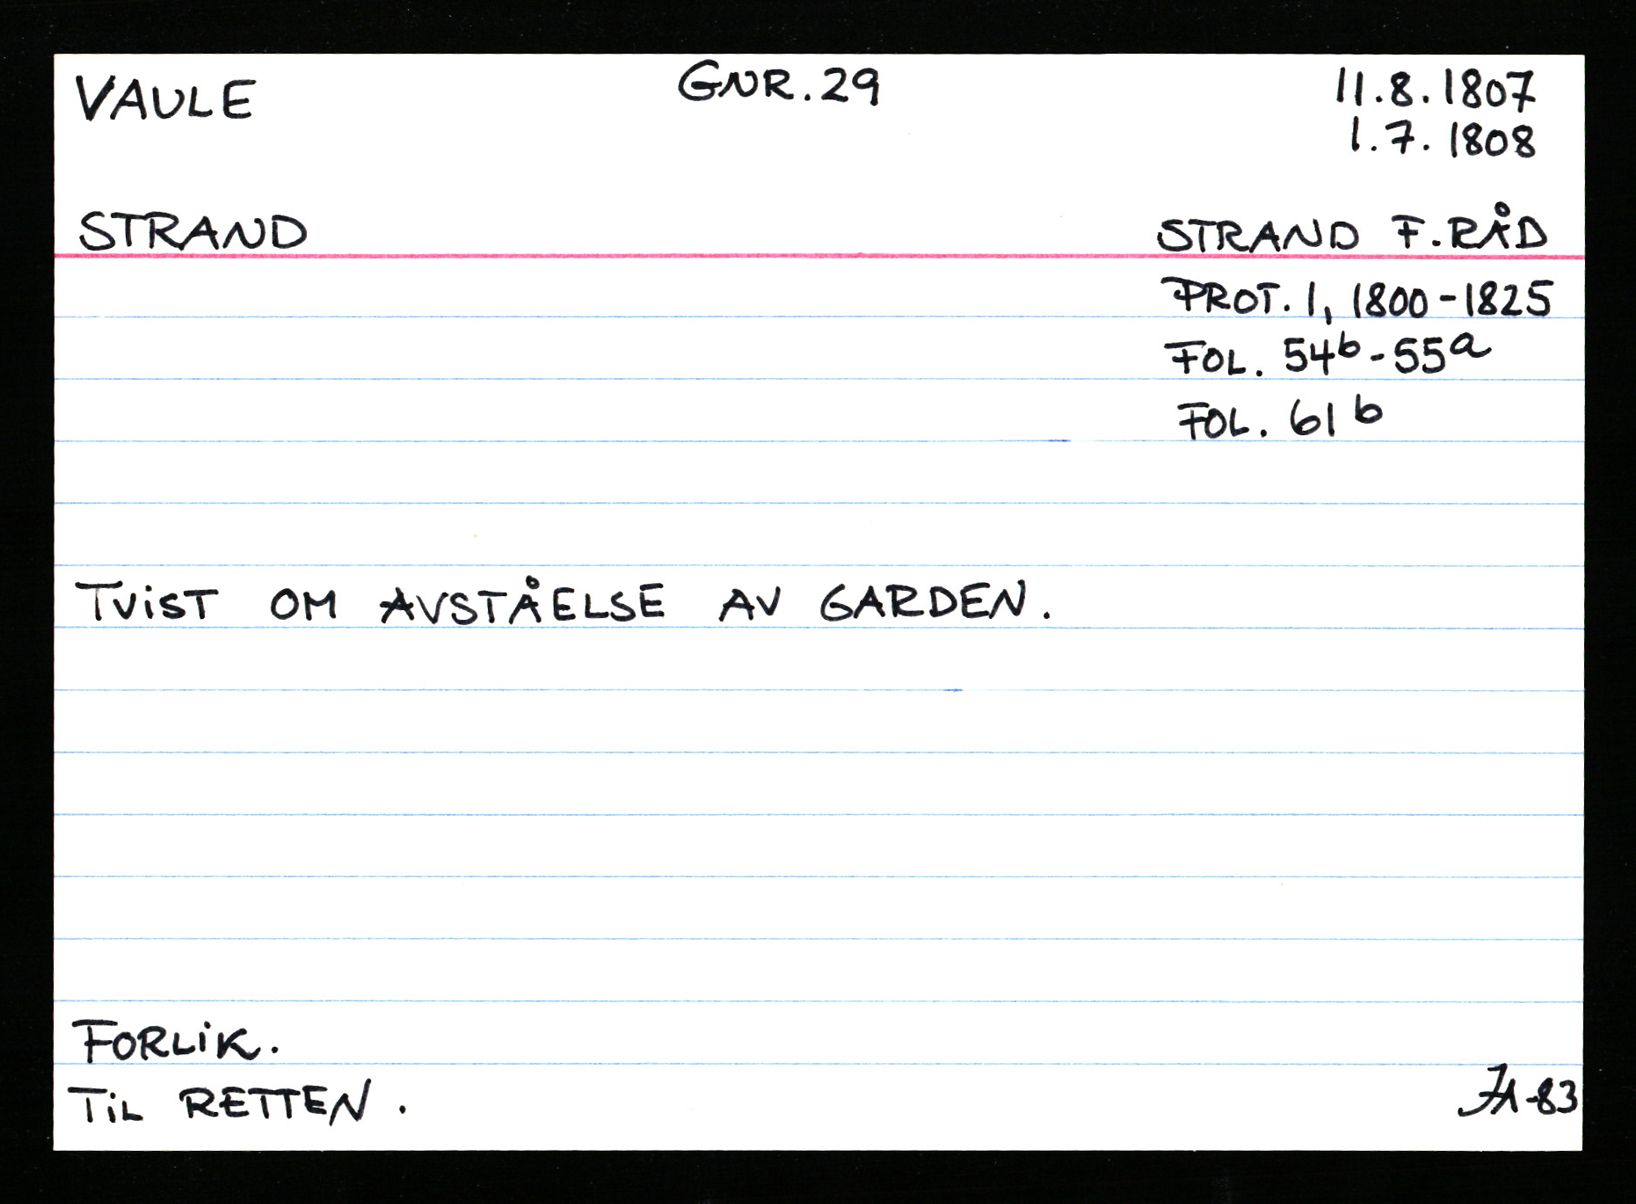 VAULE GNR. 29 11.8.1807
1.7. 1808
STRAND STRAND F.RÅD
PROT. 1, 1800-1825
FOL. 54b-55a
FOL. 61b
TViST OM AVSTÅELSE AV GARDEN.
FORLiK.
TiL RETTEN.
JA-83